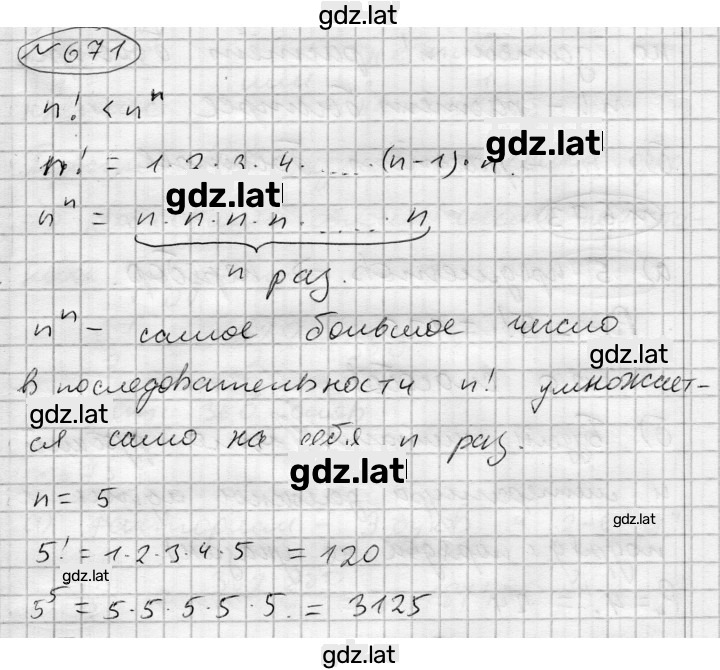 gdz.lat
№671
n! < nⁿ
gdz.lat
n! = 1·2·3·4·.....·(n-1)·n.
gdz.lat
nⁿ = n·n·n·n·......n
n раз.
nⁿ - самое большое число
gdz.lat
в последовательности n! умножает-
gdz.lat
ся само на себя n раз.
gdz.lat
n = 5
gdz.lat
5! = 1·2·3·4·5 = 120
gdz.lat
5⁵ = 5·5·5·5·5. = 3125
gdz.lat